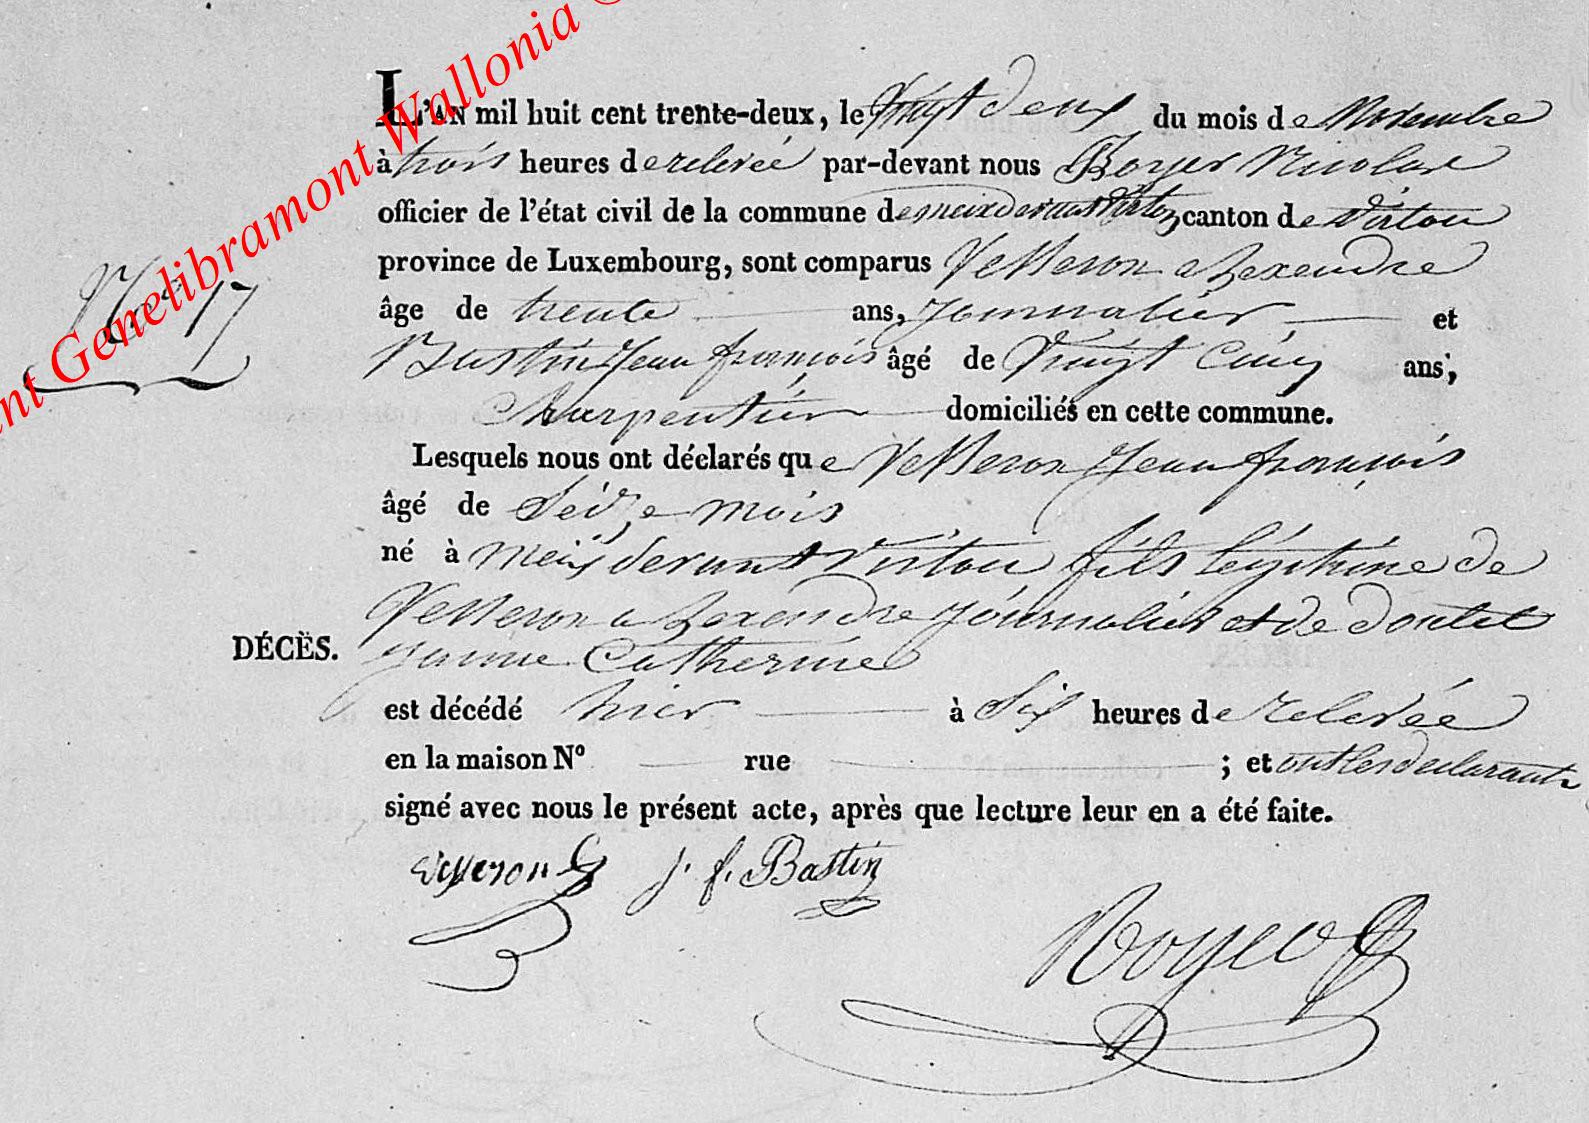 Genelibramont Wallonia
L'AN mil huit cent trente-deux, le vingt deux du mois de Novembre
à trois heures de relevée par-devant nous Boyer Nicolas
officier de l'état civil de la commune de meix devant Virton canton de Virton
province de Luxembourg, sont comparus Vesseron alexendre
N° 17
âge de trente ans, journalier et
Bastin Jean françois âgé de Vingt Cinq ans;
Charpentier domiciliés en cette commune.
Lesquels nous ont déclarés que Vesseron Jean françois
âgé de Seize mois
né à meix devant Virton fils légitime de
Vesseron alexendre journalier et de
DÉCÈS.
Catherine
est décédé hier à Six heures de relevée
en la maison N° rue ; et ont les declarants
signé avec nous le présent acte, après que lecture leur en a été faite.
Vesseron j. f. Bastin
Boyer